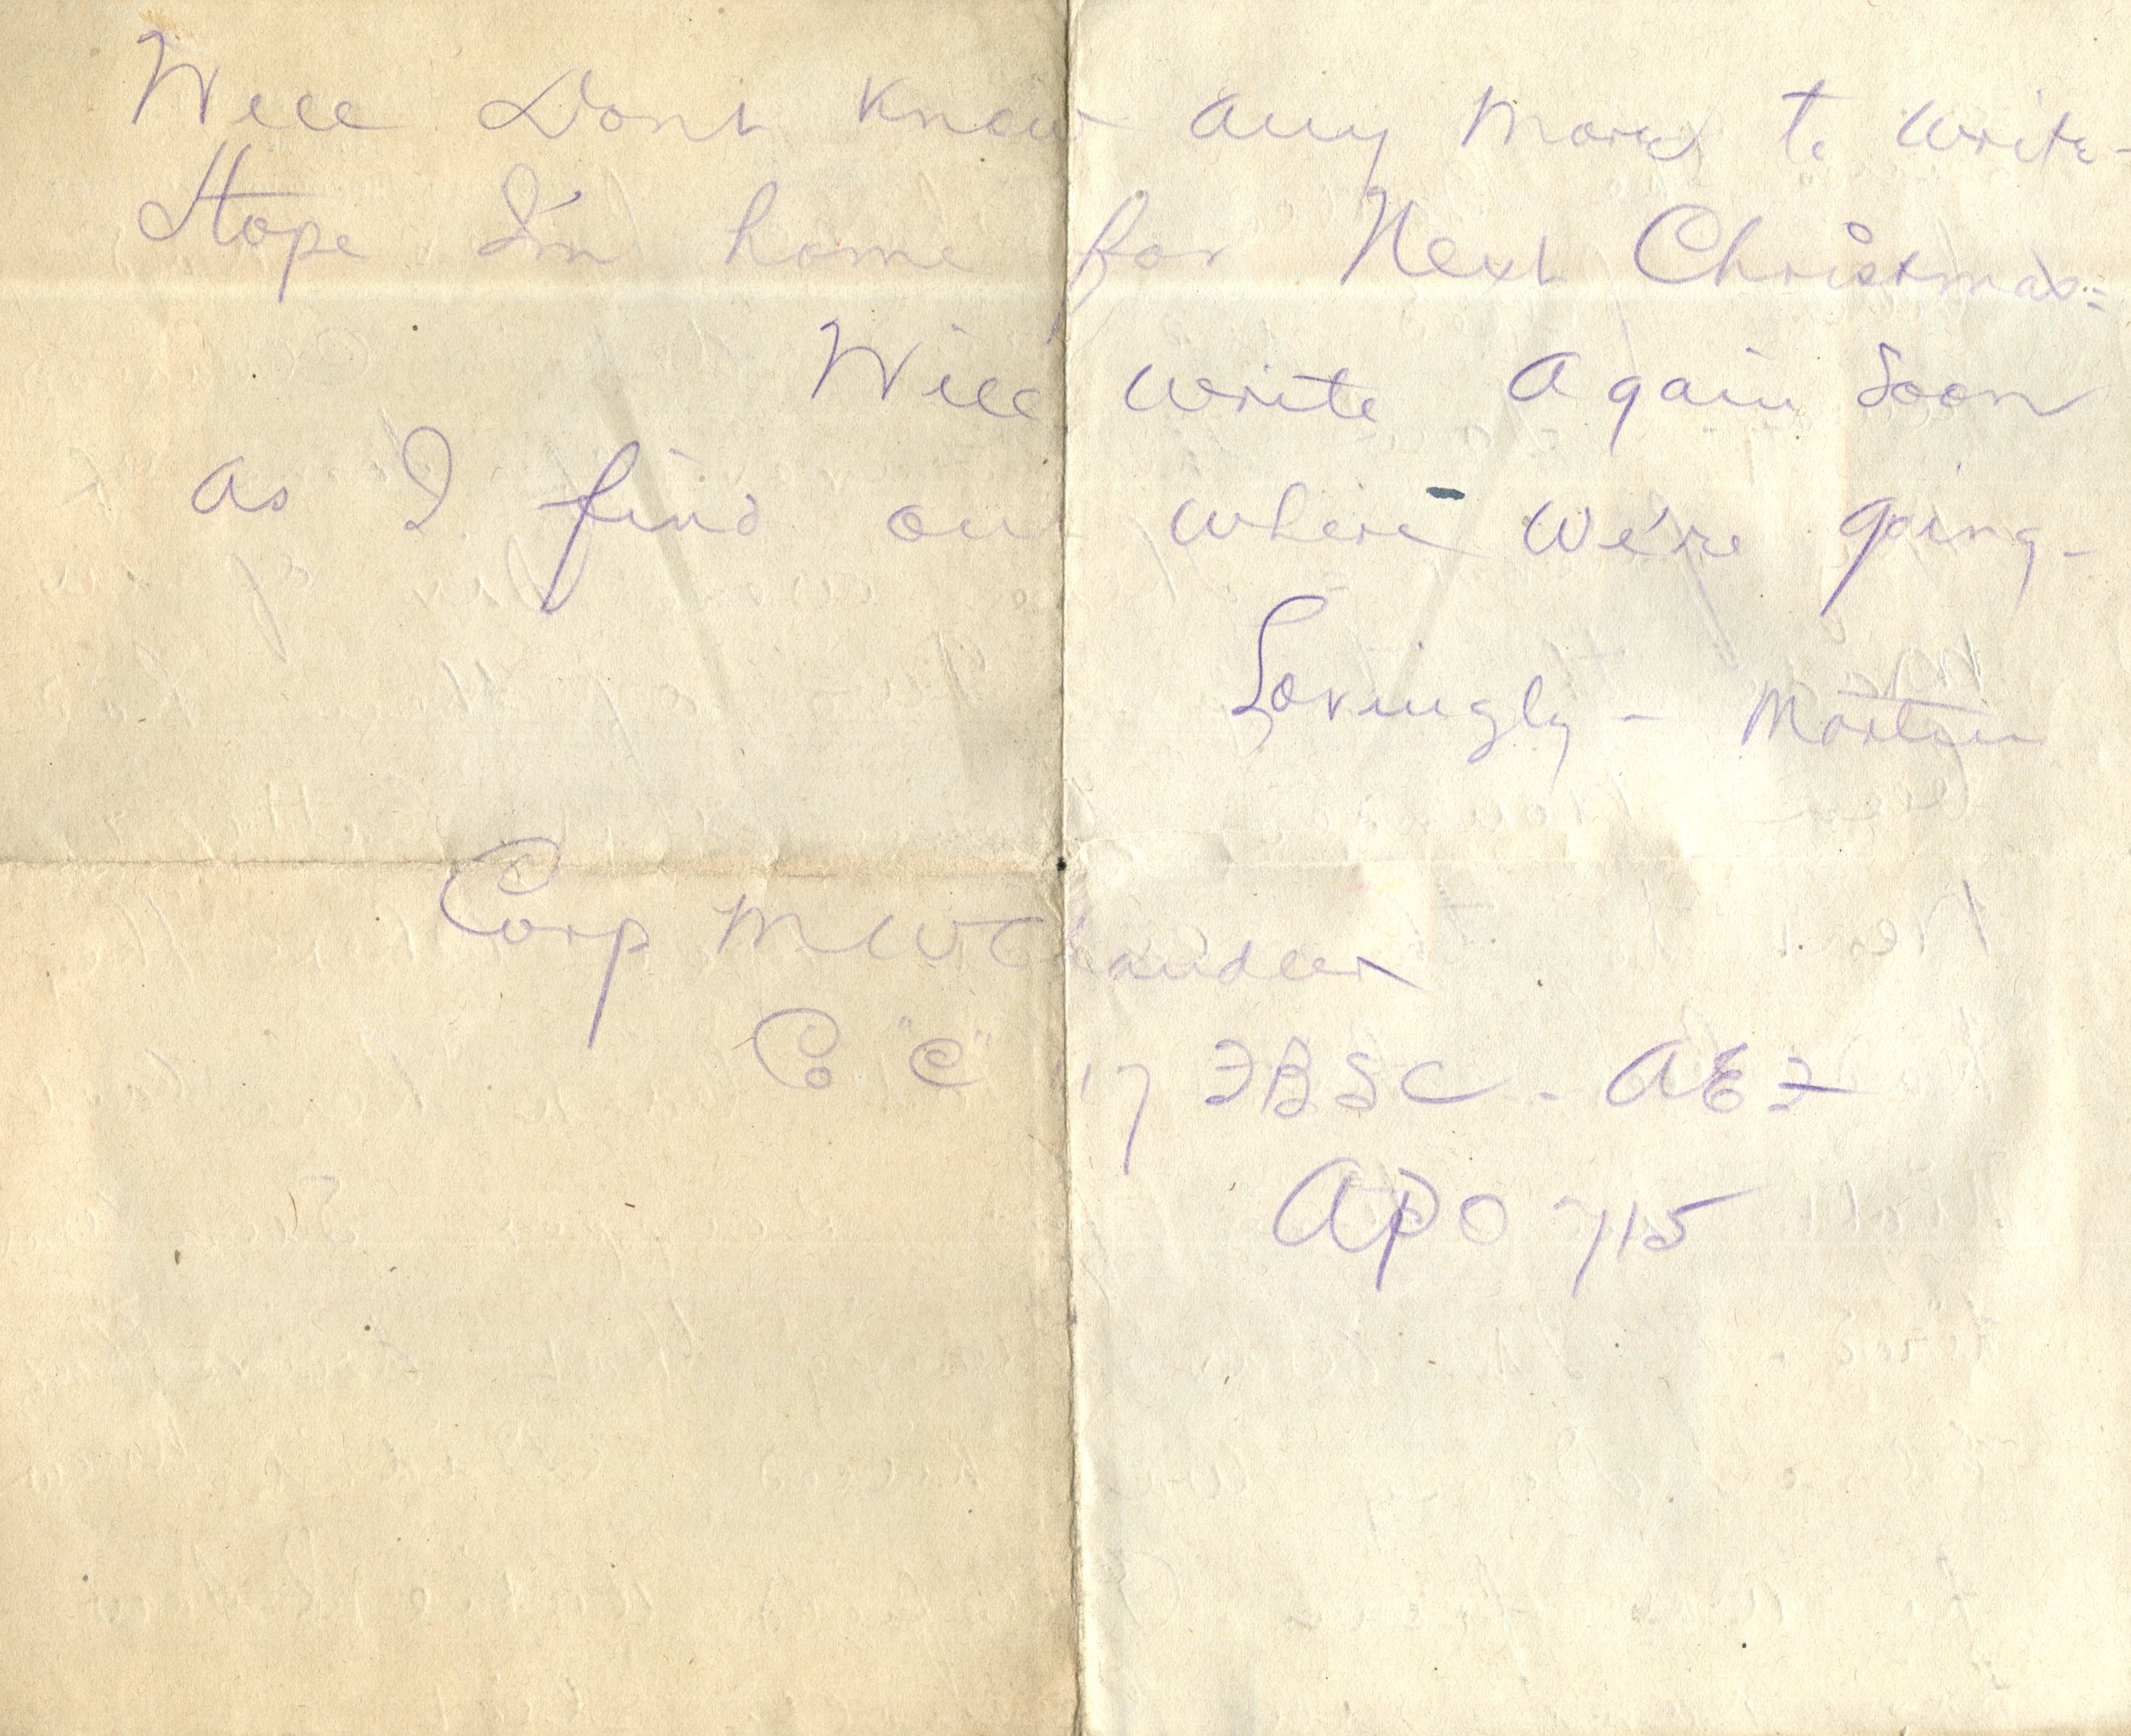 Well Dont know any more to write-
Hope I'm home for Next Christmas-
Will write Again Soon
as I find out where We're going-
Lovingly - Martin
Corp M W Chandler
Co "C" 117 FBSC - AEF
APO 715